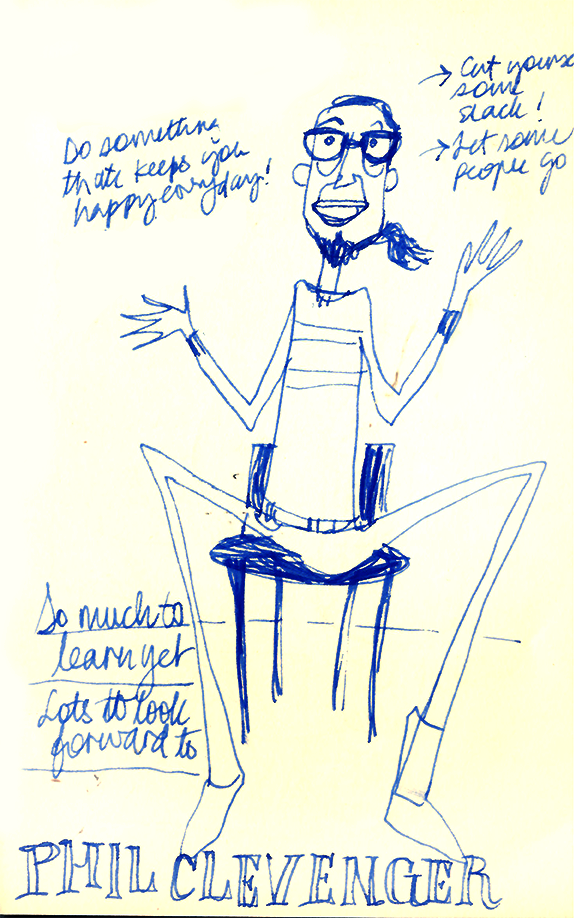 Do something
that keeps you
happy everyday!
→ Cut yourse
some
slack!
→ Let some
people go
So much to
learn yet
Lots to look
forward to
PHIL CLEVENGER